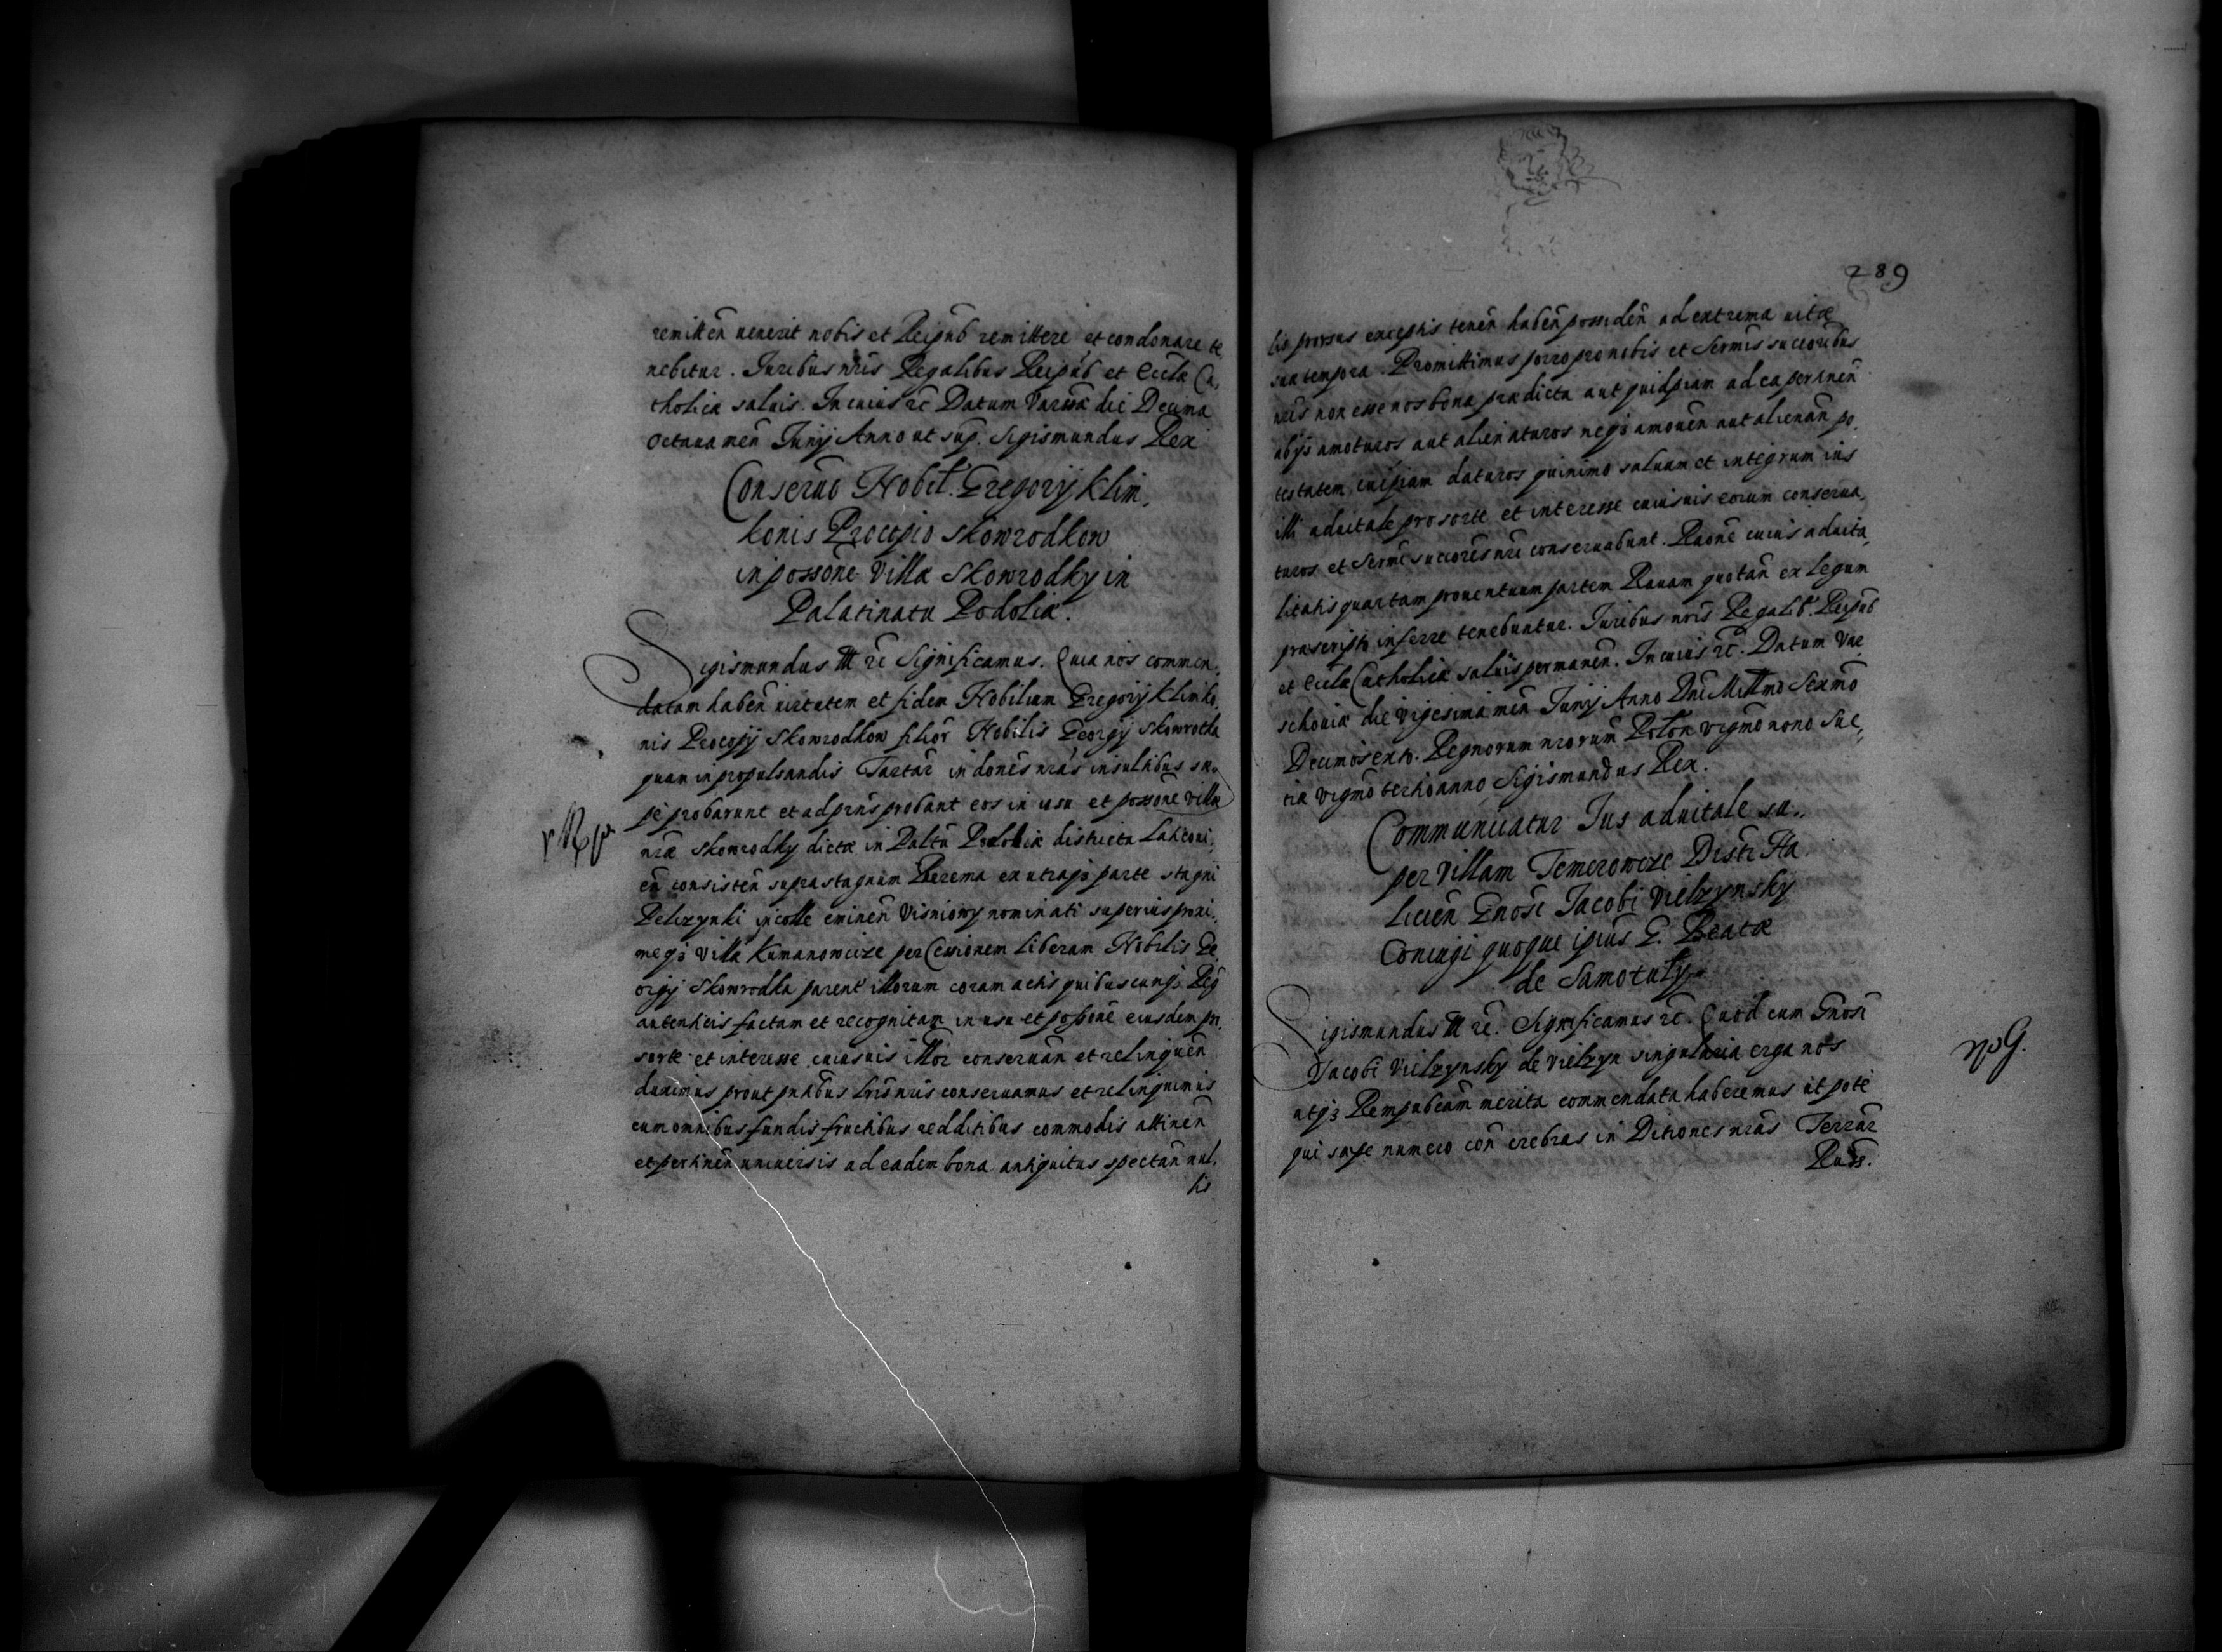 remitteñ uenerit nobis et Reipub remittere et condonare te,
nebitur. Iuribus nr̃is Regalibus Reipub et Eccłæ Ca,
tholicæ saluis. In cuius rc̃ Datum Varsæ die Decima
octaua meñ Iunij Anno ut sup. Sigismundus Rex
Conseruõ Nobił. Gregorij Klim,
konis Procopio Skowrodkow
in possoñe Villæ Skowrodky in
Palatinatu Podoliæ.
Sigismundus III rc̃ Significamus. Quia nos commen,
datam habeñ uirtutem et fidem Nobilium Gregorij Klimko,
nis Procopij Skowrodkow filior̃ Nobilis Georgij Skowrotka
quam in propulsandis Tartar̃ in doneś nrás insultibus sæ,
pe probarunt et ad præns probant eos in usu et possoñe villæ
nræ Skowrodky dictæ in Paltũ Podoliæ districtu Latyczoui,
eñ consisteñ supra stagnum Berema ex utraqз parte stagni
Pelczynki in colle emineñ Visniowy nominati superius proxi,
meqз Villæ Kumanowcze per Cessionem liberam Nobilis Ge,
orgij Skowrodka parent illorum coram actis quibuscunqз Reg
autenticis factam et recognitam in usu et possoñe eiusdem pr,
sorte et interesse cuiusuis illor̃ conseruañ et relinqueñ
duximus prout pñtibus lr̃is nr̃is conseruamus et relinquimus
cum omnibus fundis fructibus redditibus commodis attineñ
et pertineñ uniuersis ad eadem bona antiquitus spectañ nul,
lis
289
lis prorsus exceptis teneñ habeñ possideñ ad extrema uitæ
sua tempora. Promittimus porro pro nobis et Serm̃is succoribus
nr̃is non esse nos bona prædicta aut quidpiam ad ea pertineñ
ab ijs amoturos aut alienaturos neqз amoueñ aut alienañ po,
testatem cuipiam daturos quinimo saluum et integrum ius
illi aduitale pro sorte et interesse cuiusuis eorum conserua,
turos et Serm̃i succores nr̃i conseruabunt. Raõne cuius aduita,
litatis quartam prouentuum partem Rauam quotañ ex legum
præscripto inferre tenebuntur. Iuribus nr̃is Regalib. Reipub
et Eccłæ Catholicæ saluis permaneñ. In cuius rc̃. Datum Var
schouiæ die Vigesima meñ Iunij Anno Dni Millmo Sexmõ
Decimosexto. Regnorum nrorum Polon vigmõ nono Sue,
tiæ vigmõ tertio anno Sigismundus Rex.
Communicatur Ius aduitale su,,
per Villam Temerowcze Distr Ha
licieñ Gnosi Iacobi Vielzynsky
Coniugi quoque ipius G. Beatæ
de Samotuły
Sigismundus III rc̃. Significamus rc̃. Quod cum Gnosi
Iacobi Vielzynsky de Vielzyn singularia erga nos
atqз Rempubcam merita commendata haberemus ut pote
qui sæpe numero coñ crebras in Ditiones nras Terrar̃
Russ.